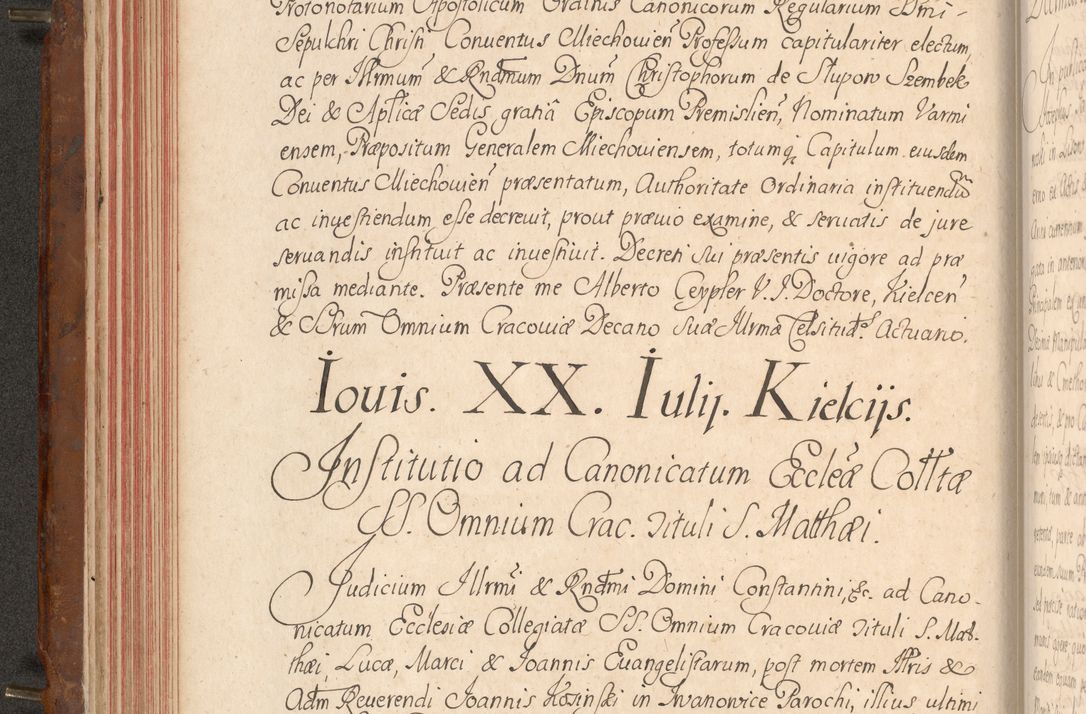 Protonotarium Apostolicum Ordinis Canonicorum Regularium Smi-
Sepulchri Christi Conuentus Miechouien̄ Professum capitulariter electum,
ac per Illrmum & Rndmum Dnum Christophorum de Słupow Szembek
Dei & Aplicæ Sedis gratiâ Episcopum Premislien̄, Nominatum Varmi
ensem, Præpositum Generalem Miechouiensem, totumq Capitulum eiusdem
Conuentus Miechouien̄ præsentatum, Authoritate Ordinaria instituendum
ac inuestiendum esse decreuit, prout præuio examine, & seruatis de jure
seruandis instituit ac inuestiuit. Decreti sui præsentis uigore ad præ
missa mediante. Præsente me Alberto Ceypler V. I. Doctore, Kielcen̄
& SSrum Omnium Cracouiæ Decano suæ Illrmæ Celsitud̄s. Actuario.
Iouis. XX. Iulij. Kielcijs.
Institutio ad Canonicatum Eccleæ Colltæ
SS. Omnium Crac. tituli S. Matthæi.
Judicium Illrmi & Rndmi Domini Constantini, &c. ad Cano-
nicatum Ecclesiæ Collegiatæ SS. Omnium Cracouiæ tituli S. Mat-
thæi, Lucæ, Marci & Joannis Euangelistarum, post mortem Illris &
Adm Reuerendi Joannis Kosinski in Jwanowice Parochi, illius ultimi